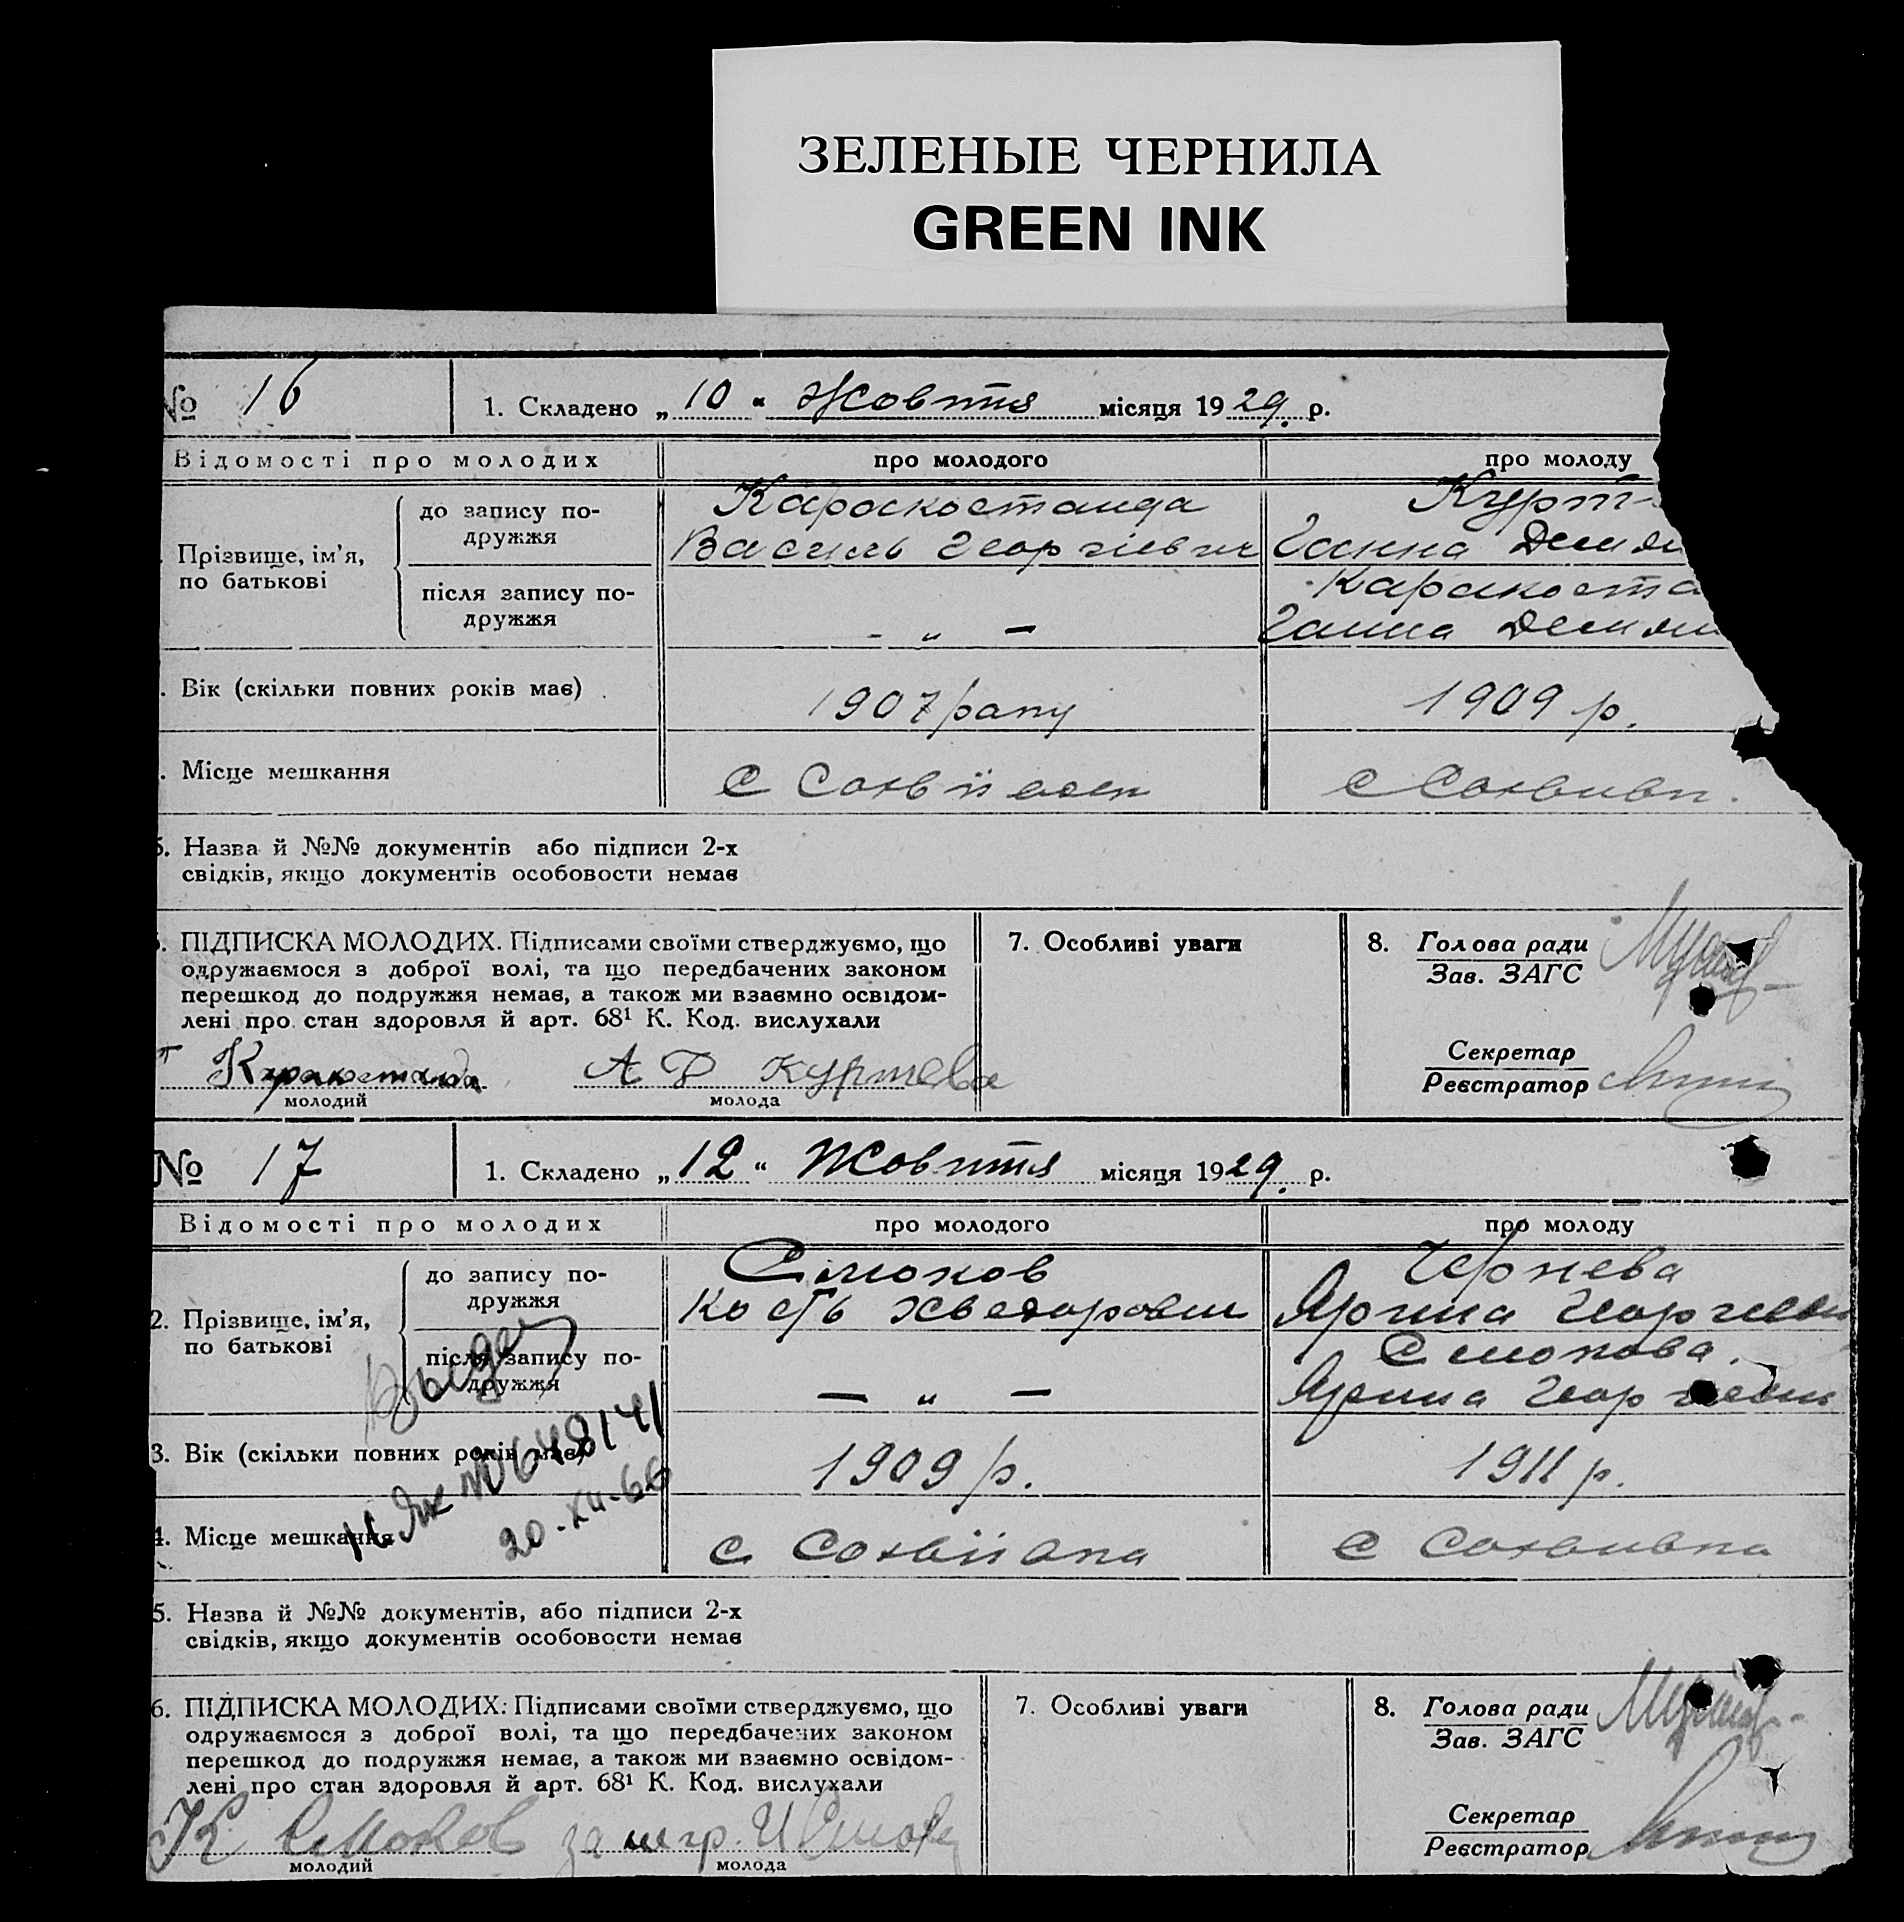 ЗЕЛЕНЫЕ ЧЕРНИЛА
GREEN INK
№ 16
1. Складено „ 10 " Жовтня місяця 1929. р.
Відомості про молодих
про молодого
про молоду
Прізвище, ім'я, по батькові
до запису по-
дружжя
Каракостанда
Василь Георгієвич
Курт
Ганна Деми
після запису по-
дружжя
- „ -
Каракоста
Ганна Деми
. Вік (скільки повних років має)
1907 року
1909 р.
. Місце мешкання
с Софіївки
с Софиевк
5. Назва й №№ документів або підписи 2-х
свідків, якщо документів особовости немає
6. ПІДПИСКА МОЛОДИХ. Підписами своїми стверджуємо, що
одружаємося з доброї волі, та що передбачених законом
перешкод до подружжя немає, а також ми взаємно освідом-
лені про стан здоровля й арт. 68¹ К. Код. вислухали
Каракостанда
молодий
А Д Куртева
молода
7. Особливі уваги
8. Голова ради
Зав. ЗАГС
Секретар
Реєстратор
№ 17
1. Складено „ 12 " Жовтня місяця 1929. р.
Відомості про молодих
про молодого
про молоду
2. Прізвище, ім'я,
по батькові
до запису по-
дружжя
Смоков
Кость Хведорович
Чернева
Ярина Георгиевн
після запису по-
дружжя
— „ —
Смокова.
Ярина Георгиевн
3. Вік (скільки повних років має)
1909 р.
1911 р.
4. Місце мешкання
с Софіївка
с Софиевка
№ 648141
20-XII-66
5. Назва й №№ документів, або підписи 2-х
свідків, якщо документів особовости немає
6. ПІДПИСКА МОЛОДИХ: Підписами своїми стверджуємо, що
одружаємося з доброї волі, та що передбачених законом
перешкод до подружжя немає, а також ми взаємно освідом-
лені про стан здоровля й арт. 68¹ К. Код. вислухали
К Смоков
молодий
за
молода
7. Особливі уваги
8. Голова ради
Зав. ЗАГС
Секретар
Реєстратор